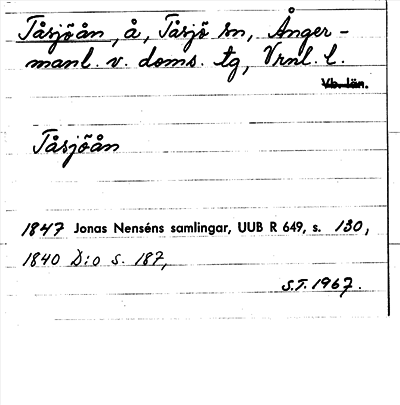 Tåsjöån, å, Tåsjö sn, Ånger-
manl. v. doms. tg, Vrnl. l.
Vb. län.
Tåsjöån
1847 Jonas Nenséns samlingar, UUB R 649, s. 130,
1840 D:o s. 187,
S.T. 1967.